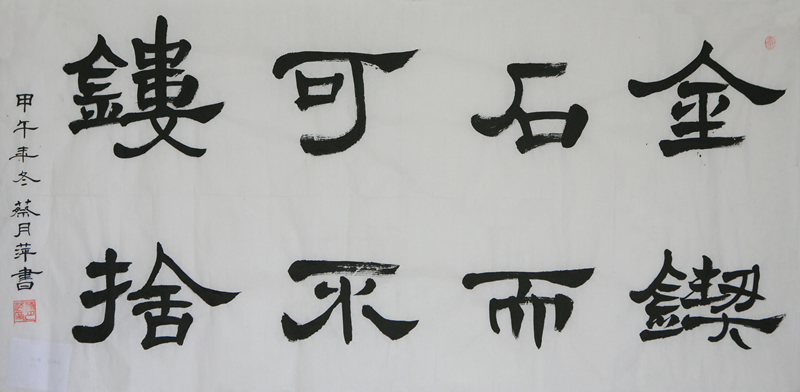 金石可鏤
鍥而不捨
甲午年冬蔡月萍書